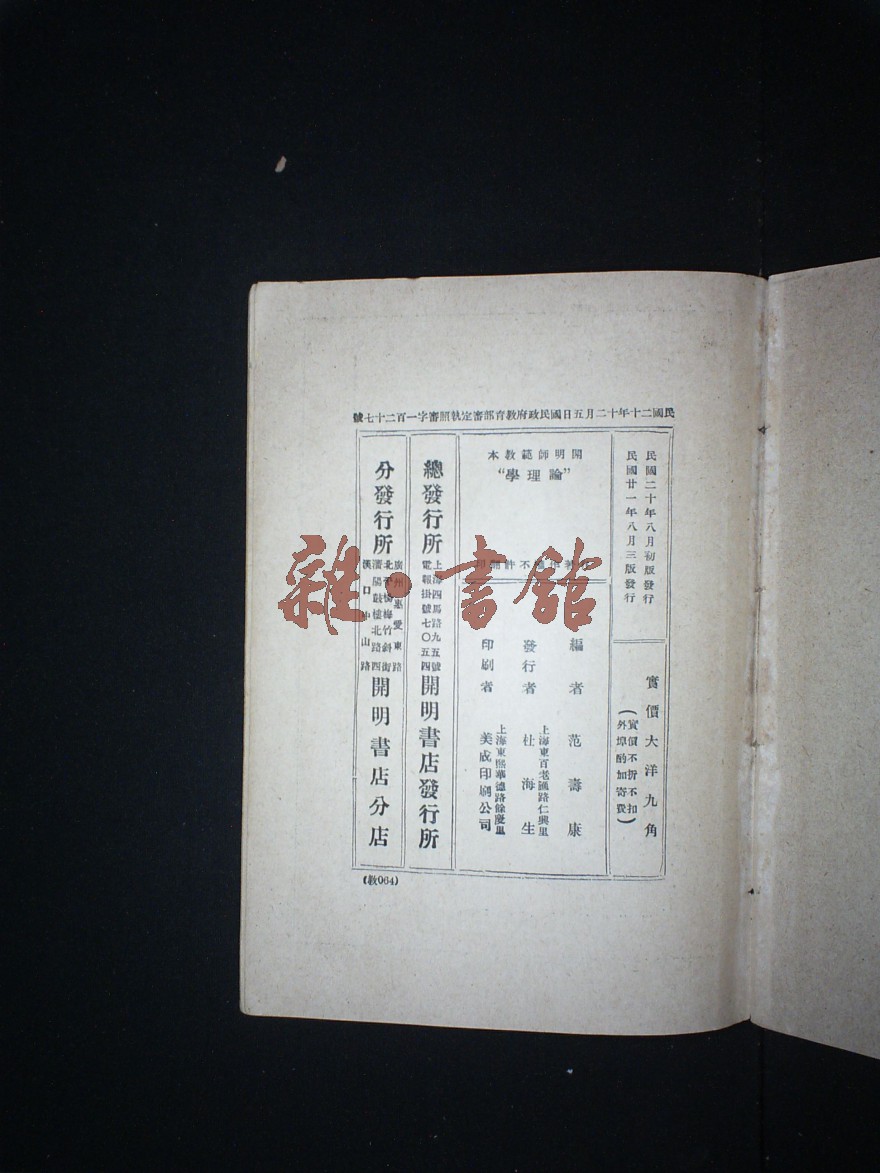 民國二十年十二月五日國民政府教育部審定執照審字一百二十七號
民國二十年八月初版發行
民國廿一年八月三版發行
實價大洋九角
(實價不折不扣
外埠酌加寄費)
開明師範教本
“論理學”
不許翻印
編者 范壽康
發行者 上海東百老匯路仁興里
杜海生
印刷者 上海東熙華德路餘慶里
美成印刷公司
總發行所 上海四馬路九五號
電報掛號七〇五四
開明書店發行所
分發行所 廣州惠愛東路
北平楊梅竹斜街
瀋陽鼓樓北路西
漢口中山路
開明書店分店
(教064)
雜·書館